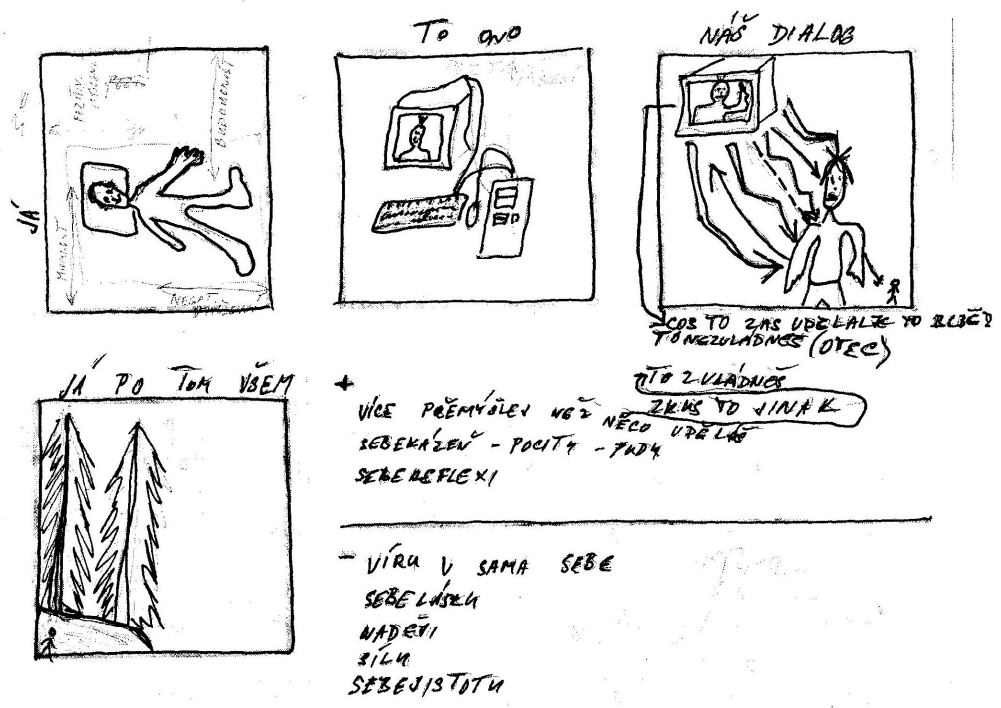 JÁ
TO ONO
NÁŠ DIALOG
MINULOST
BUDOUCNOST
NEGAT.
COS TO ZAS UDĚLAL JE TO BLBĚ?
TO NEZVLÁDNEŠ (OTEC)
TO ZVLÁDNEŠ
ZKUS TO JINAK
JÁ PO TOM VŠEM
+
VÍCE PŘEMÝŠLEJ NEŽ NĚCO UDĚLÁŠ
SEBEKÁZEŇ - POCITY - PUDY
SEBEREFLEXI
- VÍRU V SAMA SEBE
SEBELÁSKU
NADĚJI
SÍLU
SEBEJISTOTU